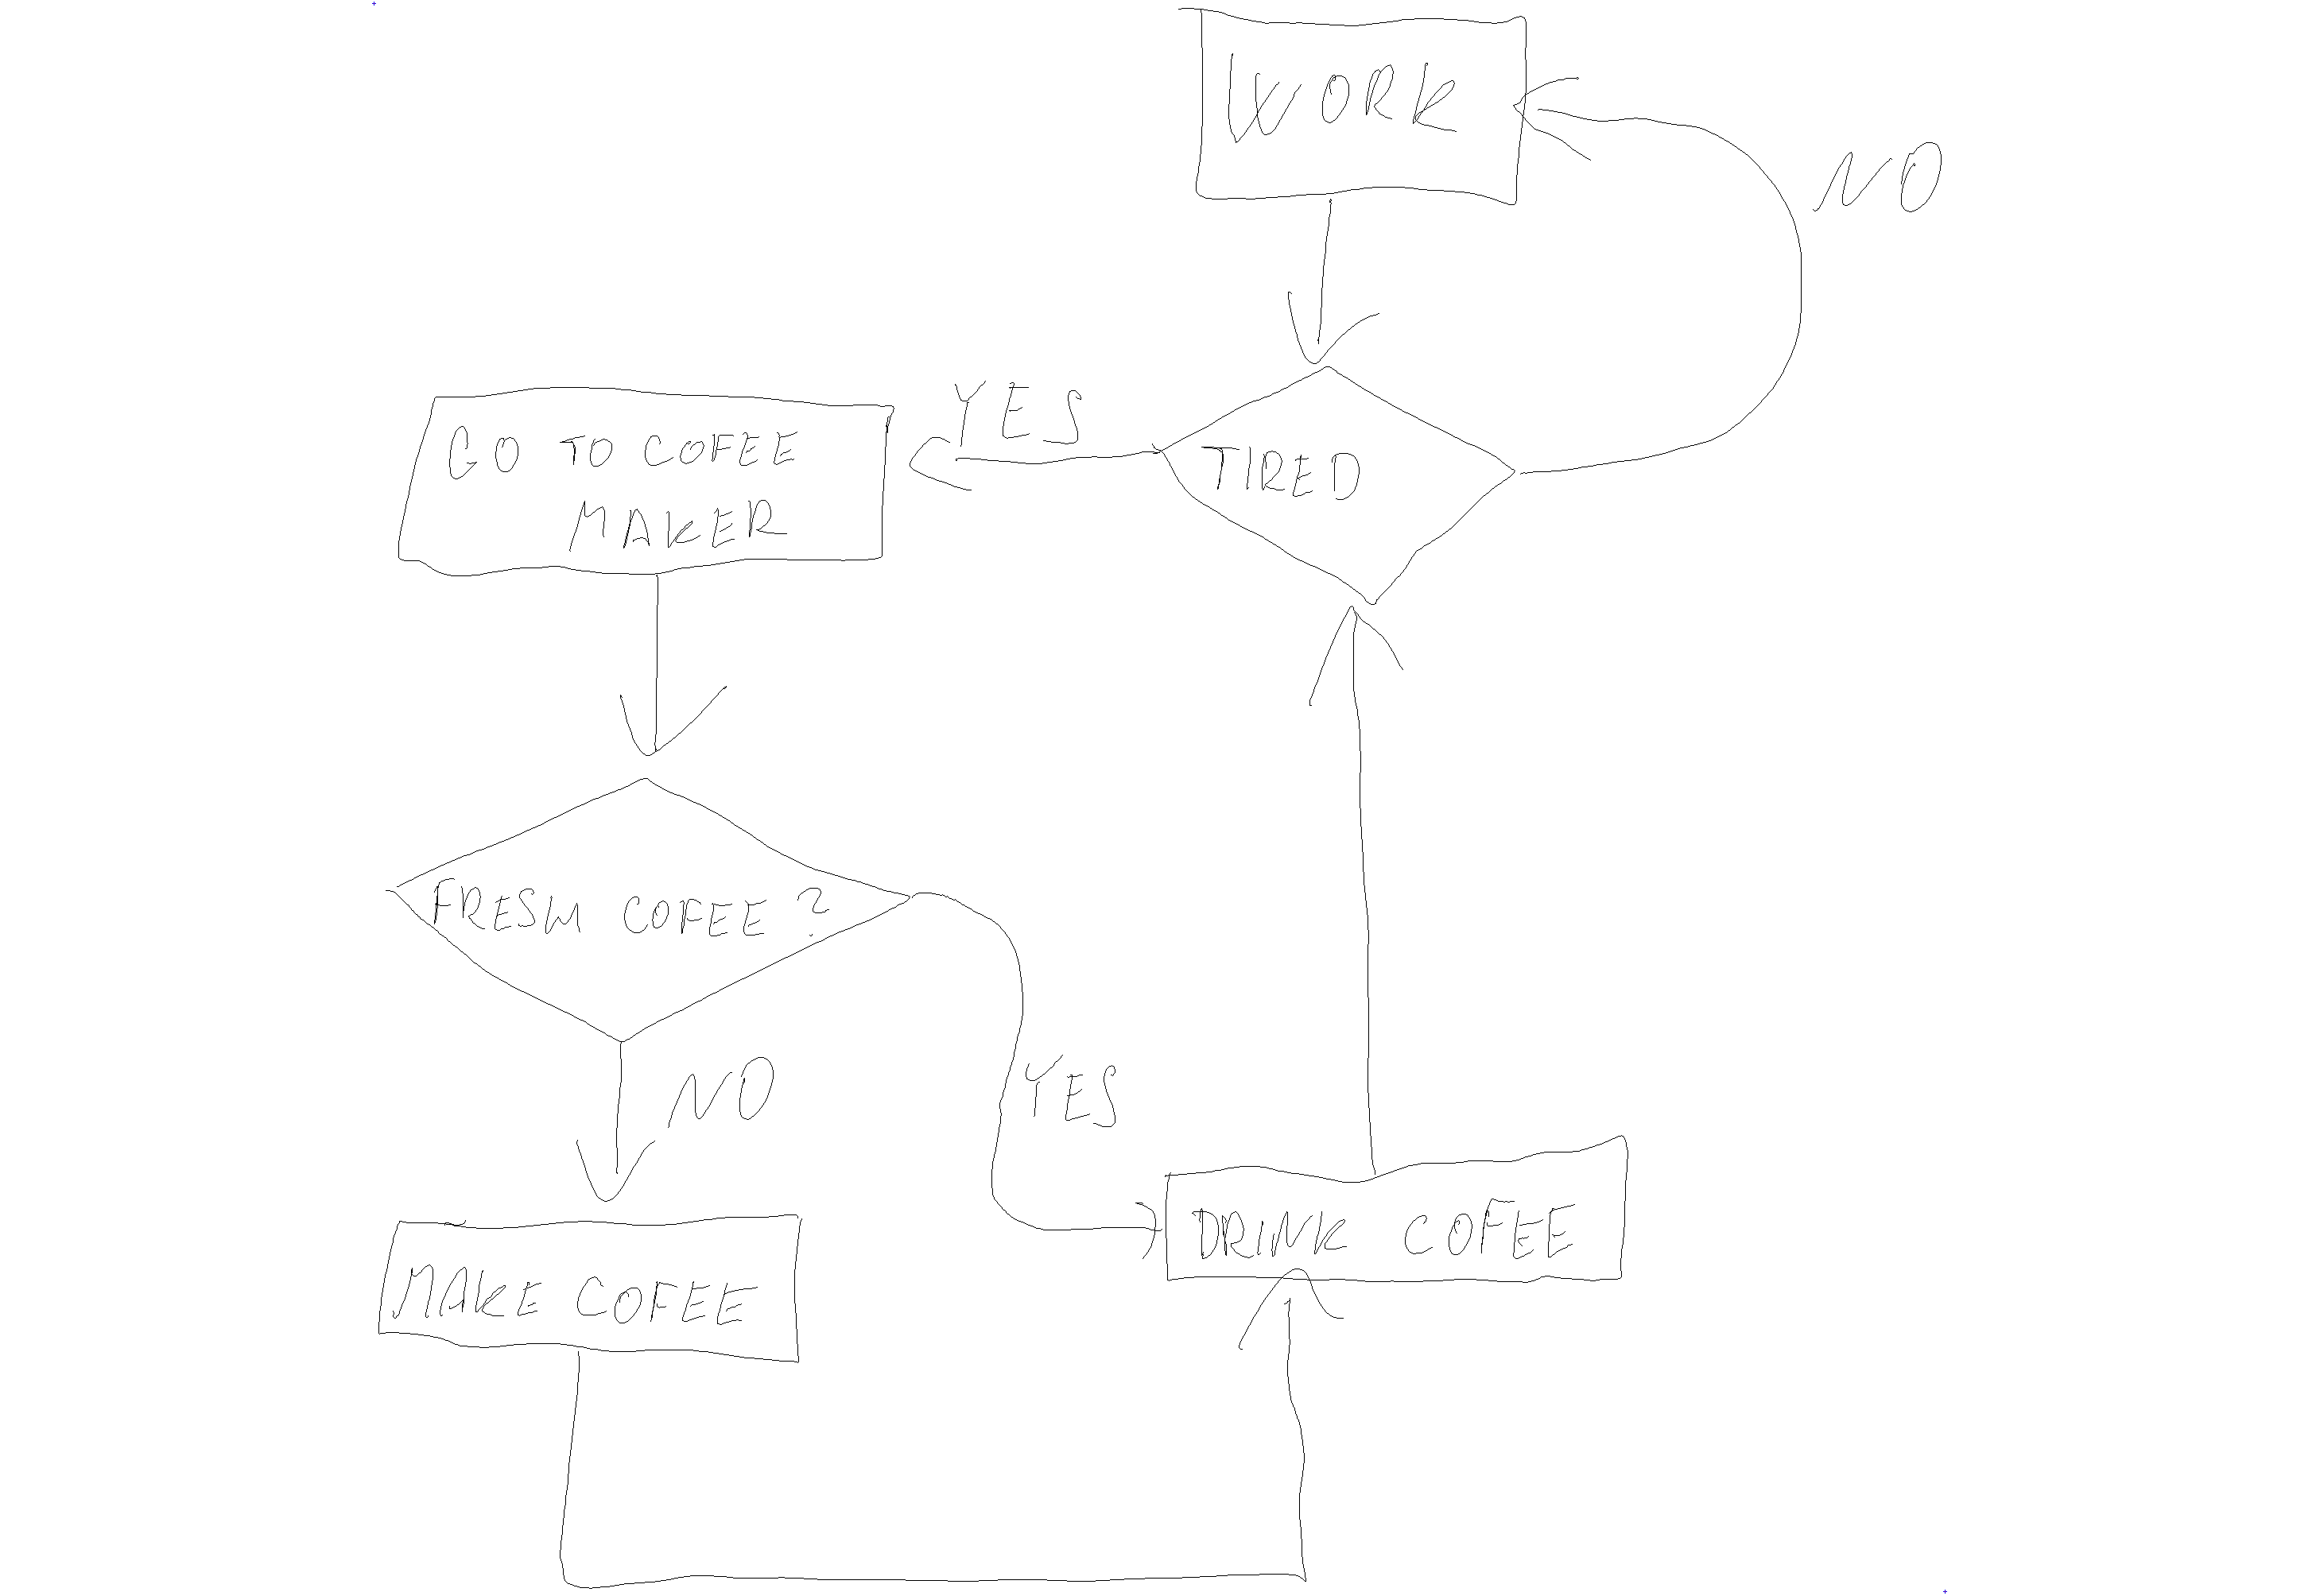 WORK
NO
YES
TIRED
GO TO COFEE
MAKER
FRESH COFEE ?
NO
YES
DRINK COFEE
MAKE COFEE